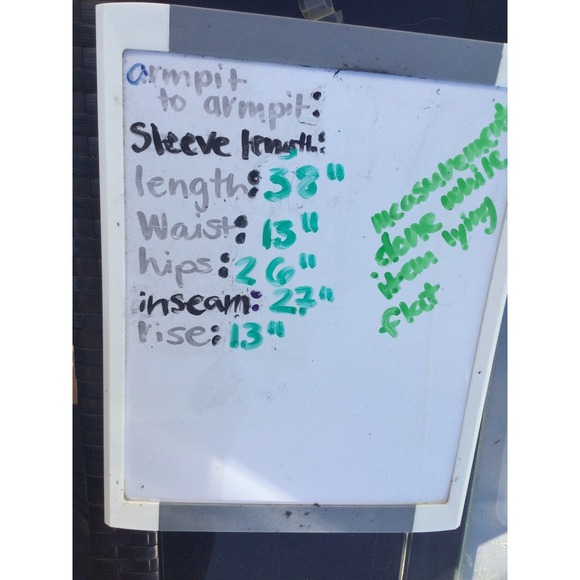 armpit
to armpit:
Sleeve length:
length: 38"
Waist: 13"
hips: 26"
inseam: 27"
rise: 13"
measurement
done while
item lying
flat